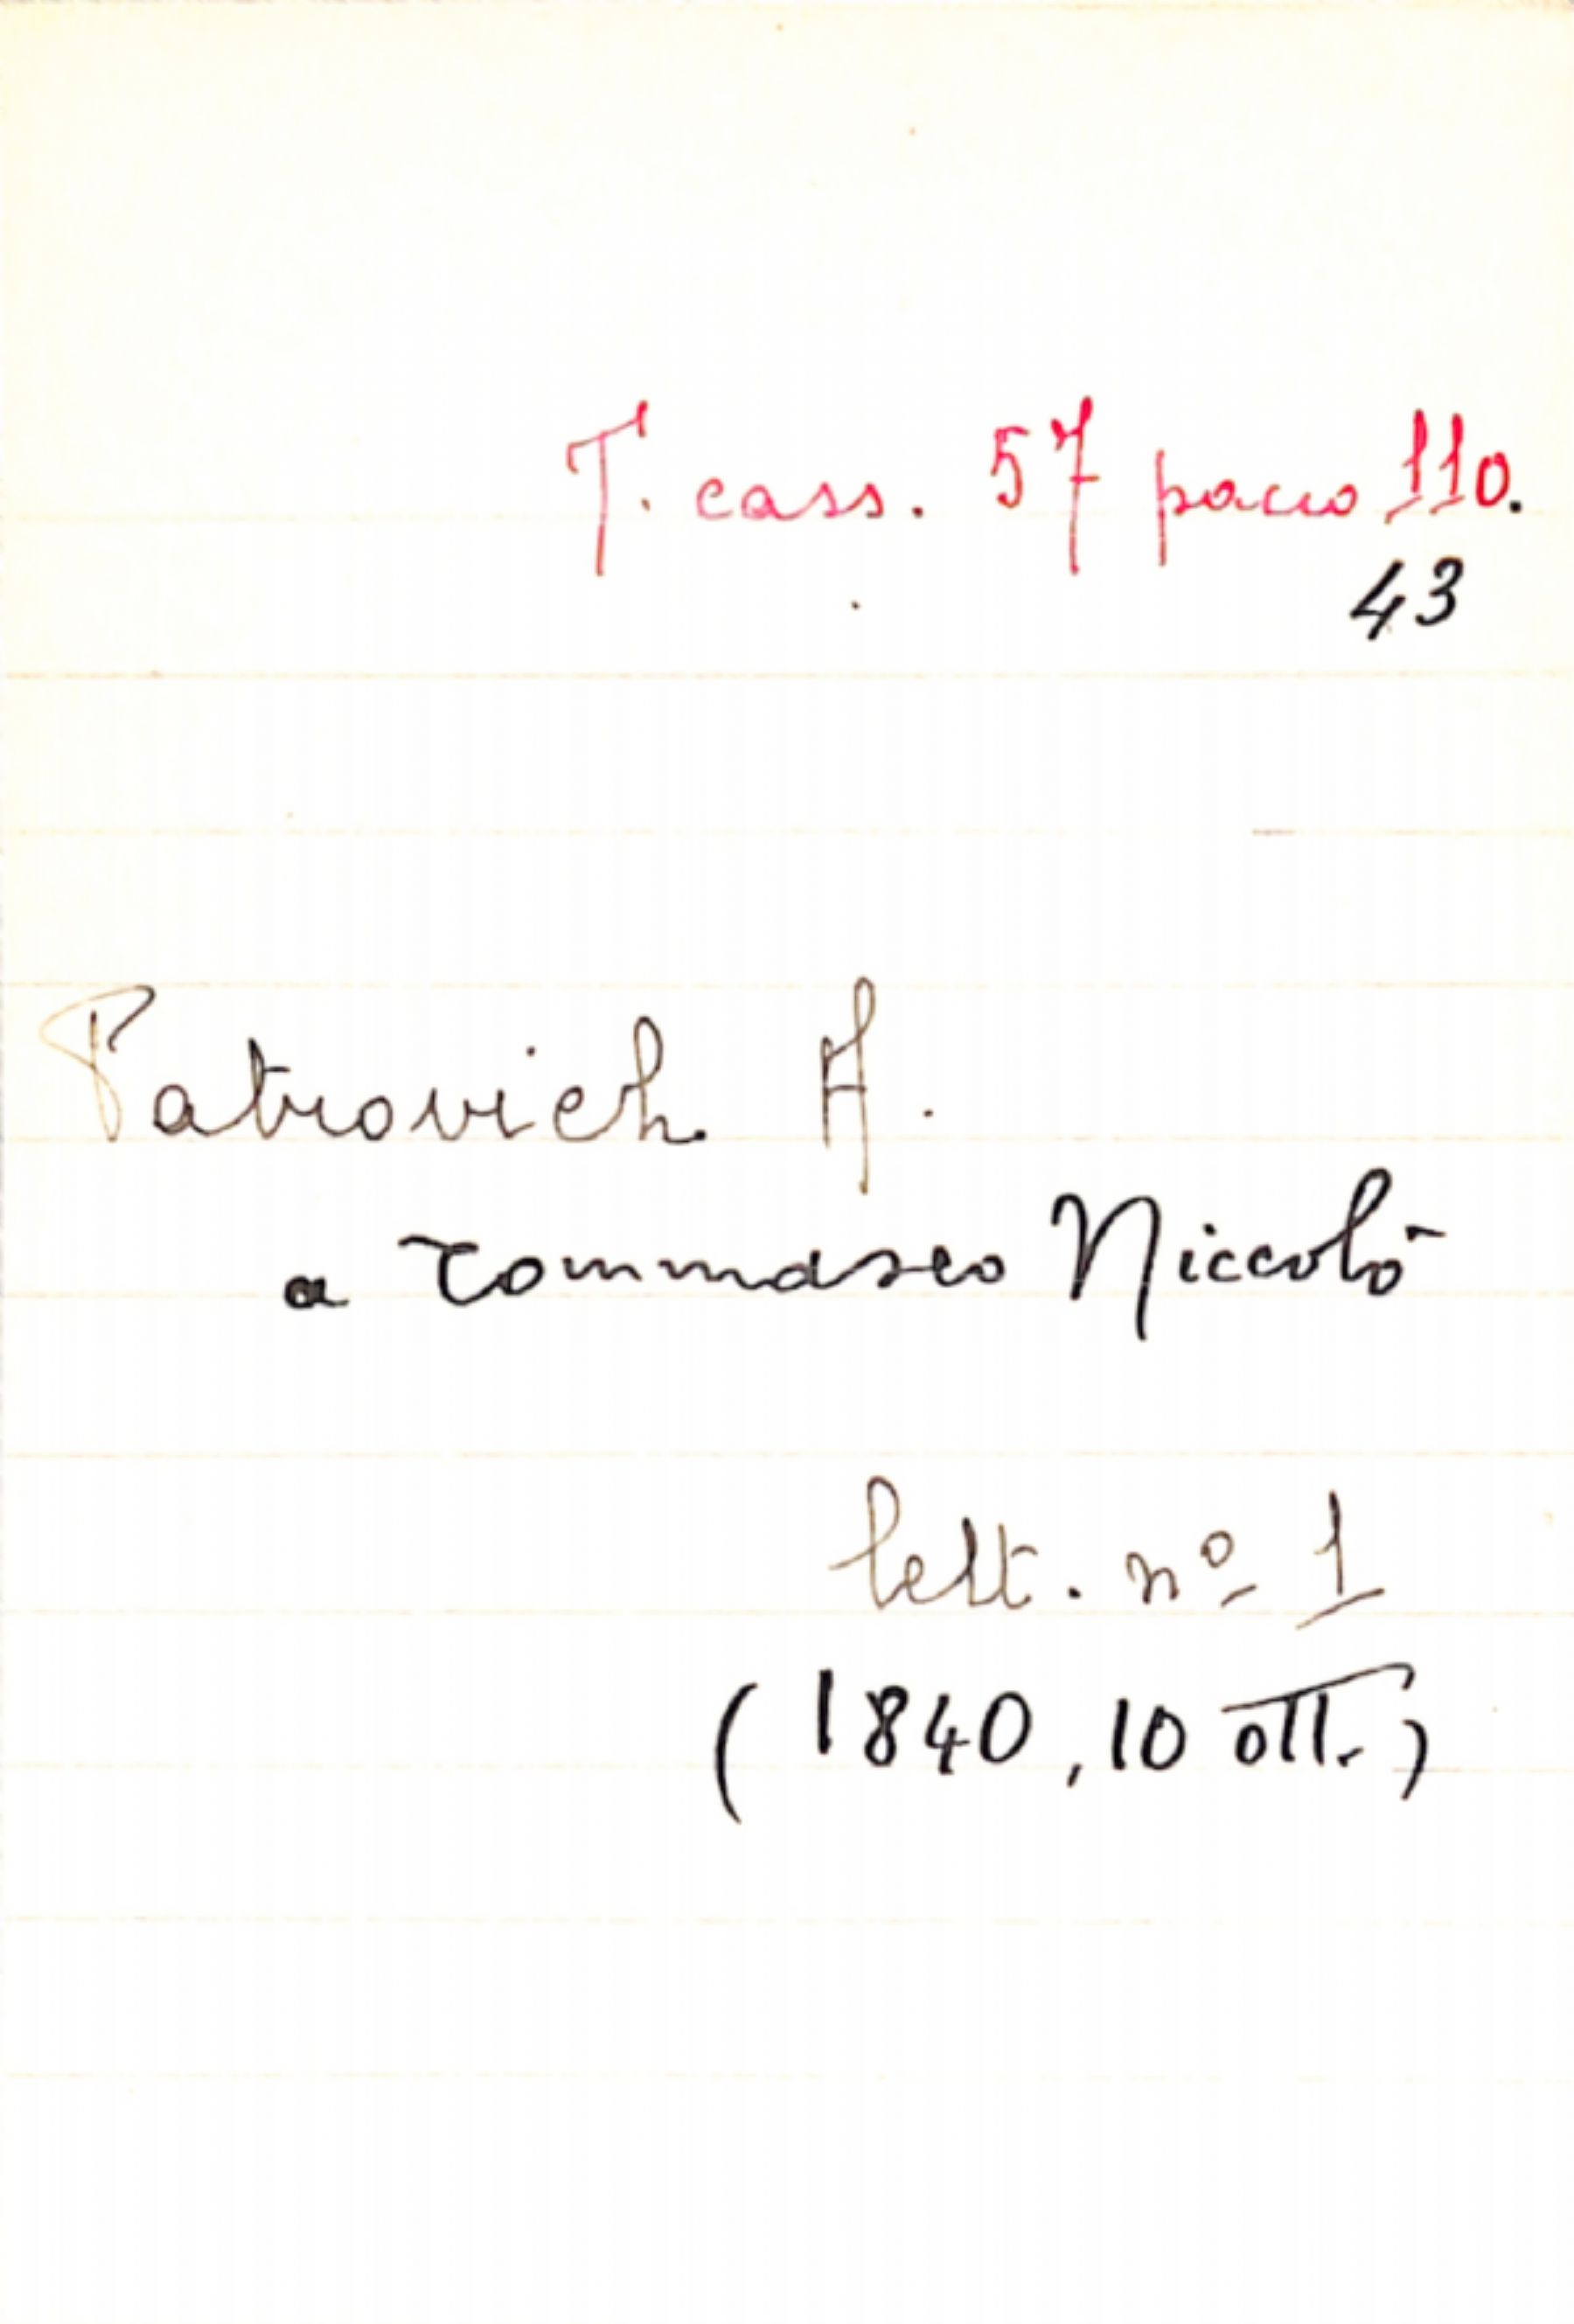 T. cass. 57 pacco 110.
43
Patrovich A.
a Tommaseo Niccolò
lett. nº 1
(1840, 10 ott.)